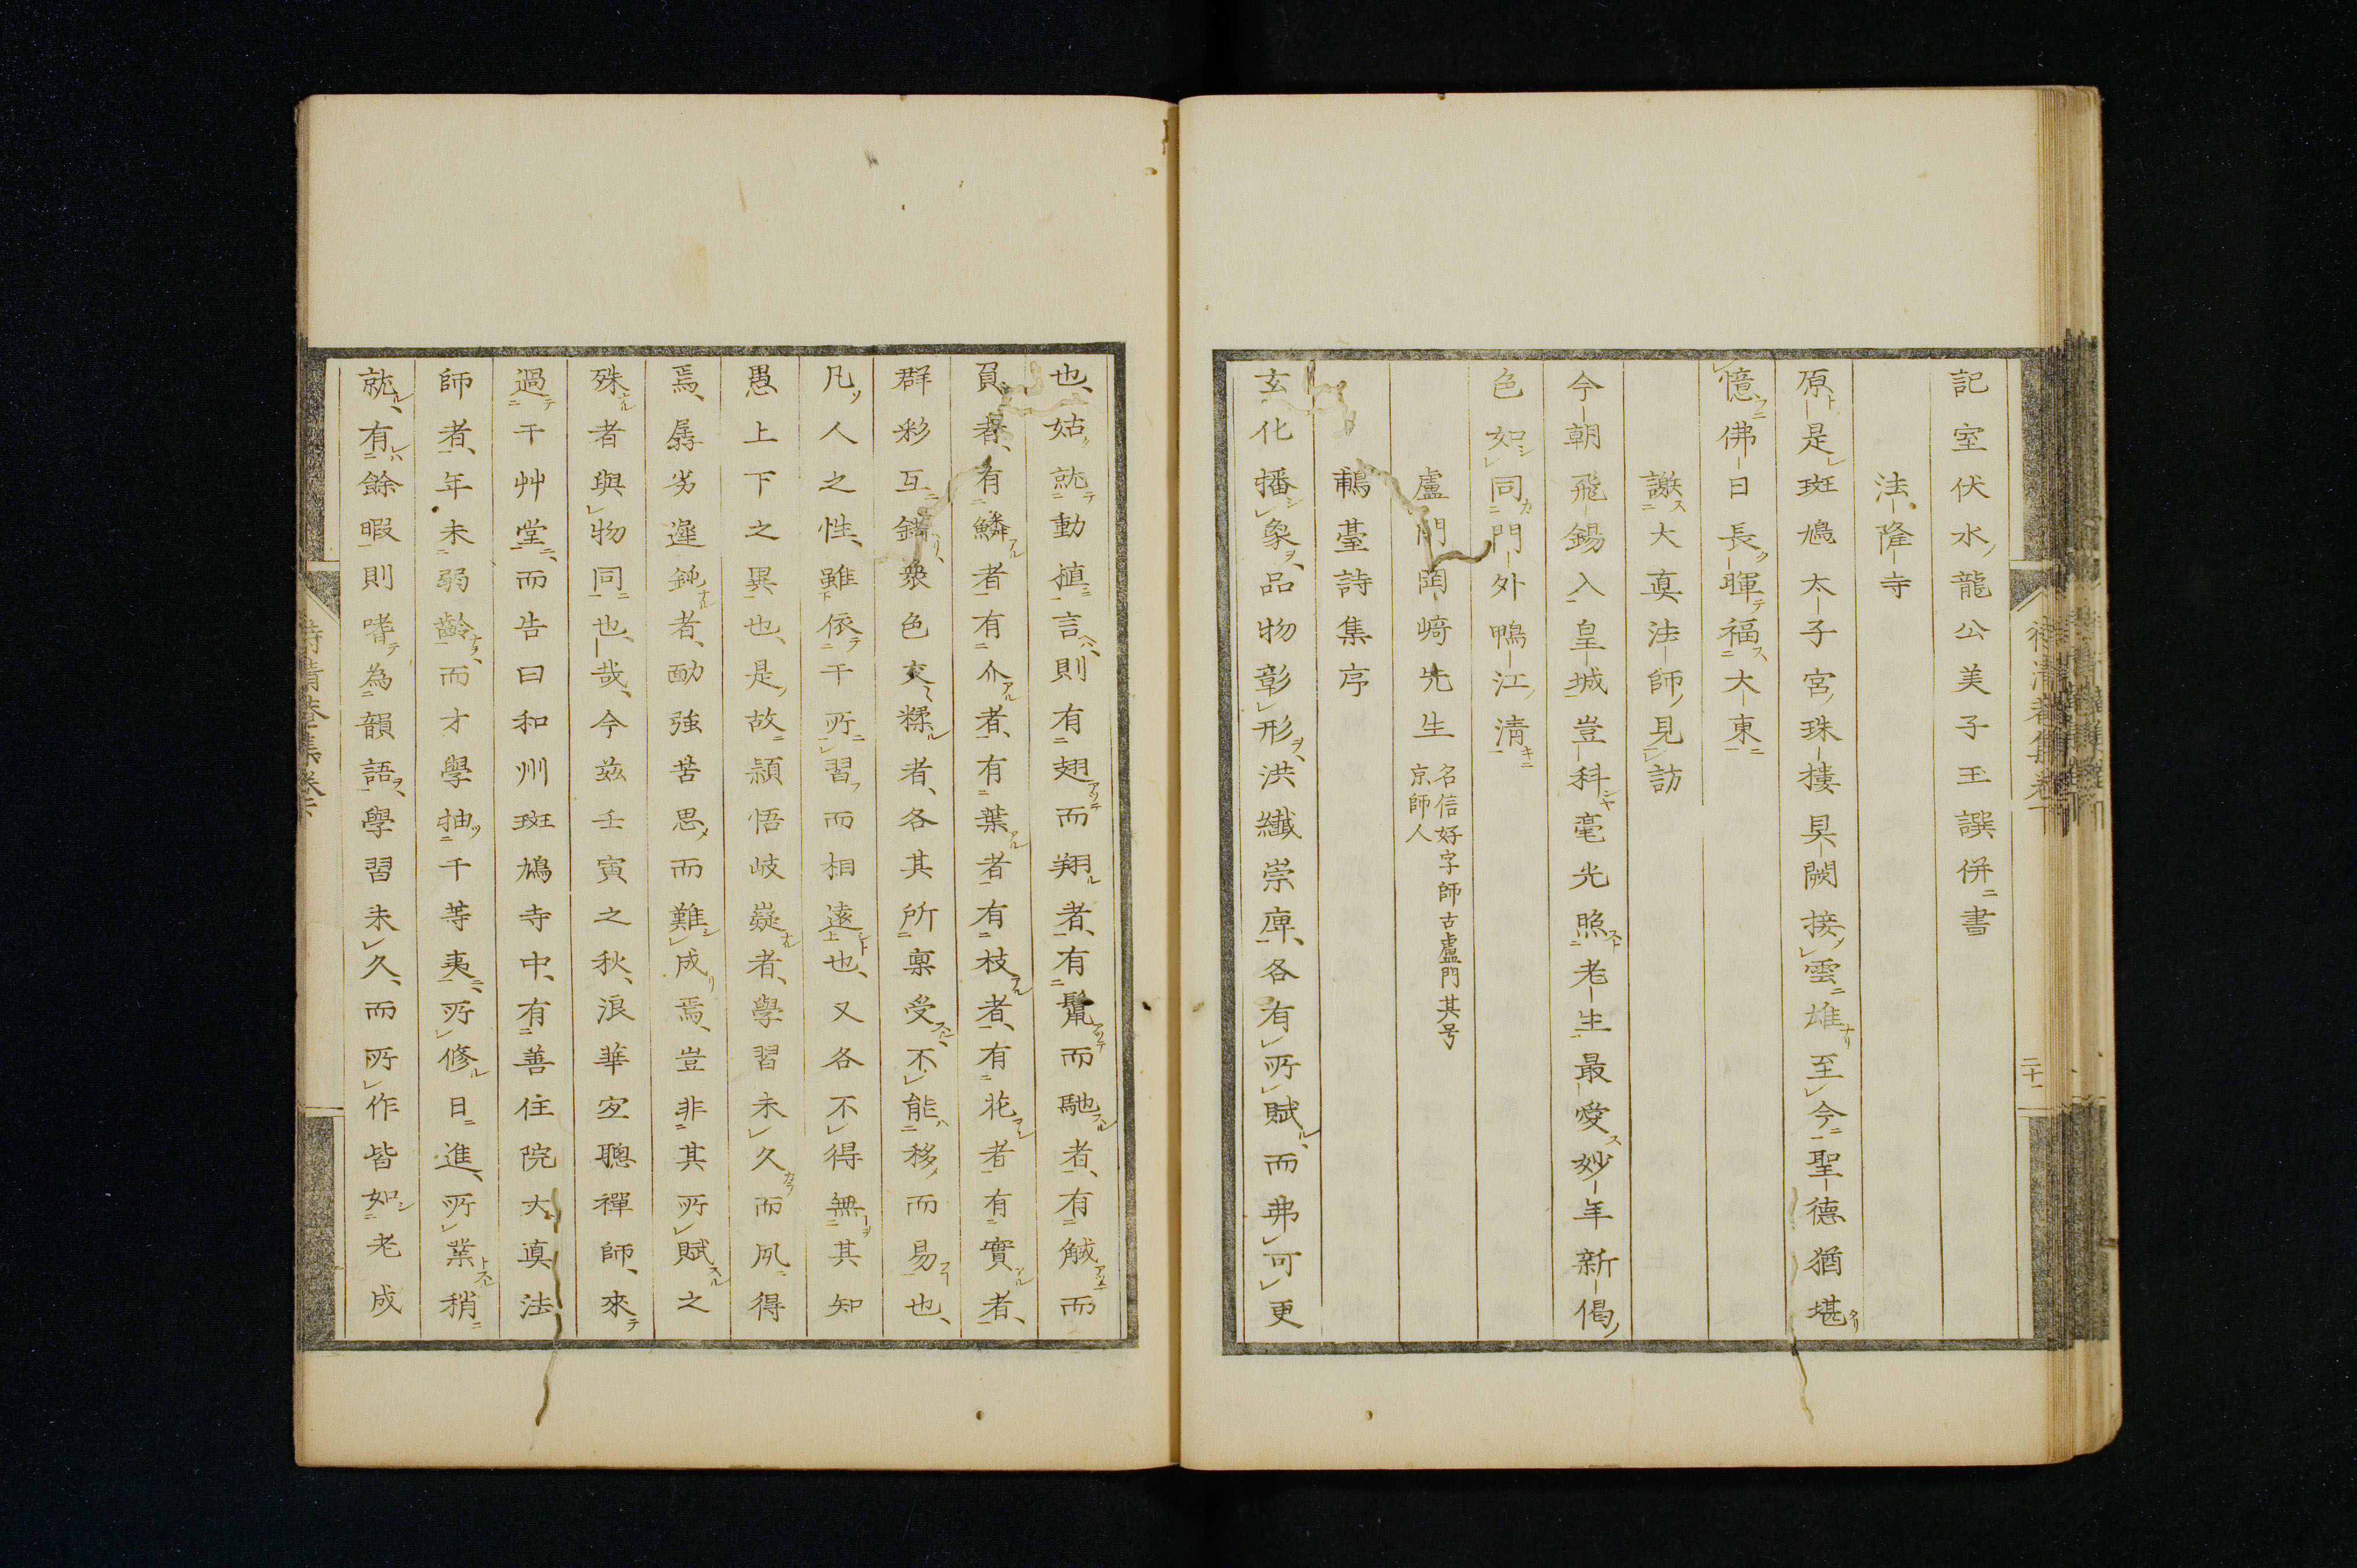 記室伏水龍公美子玉譔併書
法隆寺
原是斑鳩太子宮珠樓貝闕接雲雄至今聖德猶堪
憶佛日長暉福大東
謝大眞法師見訪
今朝飛錫入皇城豈科毫光照老生最愛妙年新偈
色如同門外鴨江清
盧門岡﨑先生
名信好字師古盧門其号
京師人
鷫臺詩集序
玄化播象品物彰形洪纖崇庳各有所賦而弗可更
也姑就動植言則有翅而翔者有鬣而馳者有觡而
者有鱗者有介者有葉者有枝者有花者有實者
群彩互錯衆色交糅者各其所稟受不能移而易也
凡人之性雖依于所習而相遠也又各不得無其知
愚上下之異也是故頴悟岐嶷者學習未久而夙得
焉孱劣遲鈍者勔強苦思而難成焉豈非其所賦之
殊者與物同也哉今茲壬寅之秋浪華宏聰禪師來
過于艸堂而告曰和州斑鳩寺中有善住院大眞法
師者年未弱齡而才學抽千等夷所修日進所業稍
就有餘暇則嗜為韻語學習未久而所作皆如老成
二十一